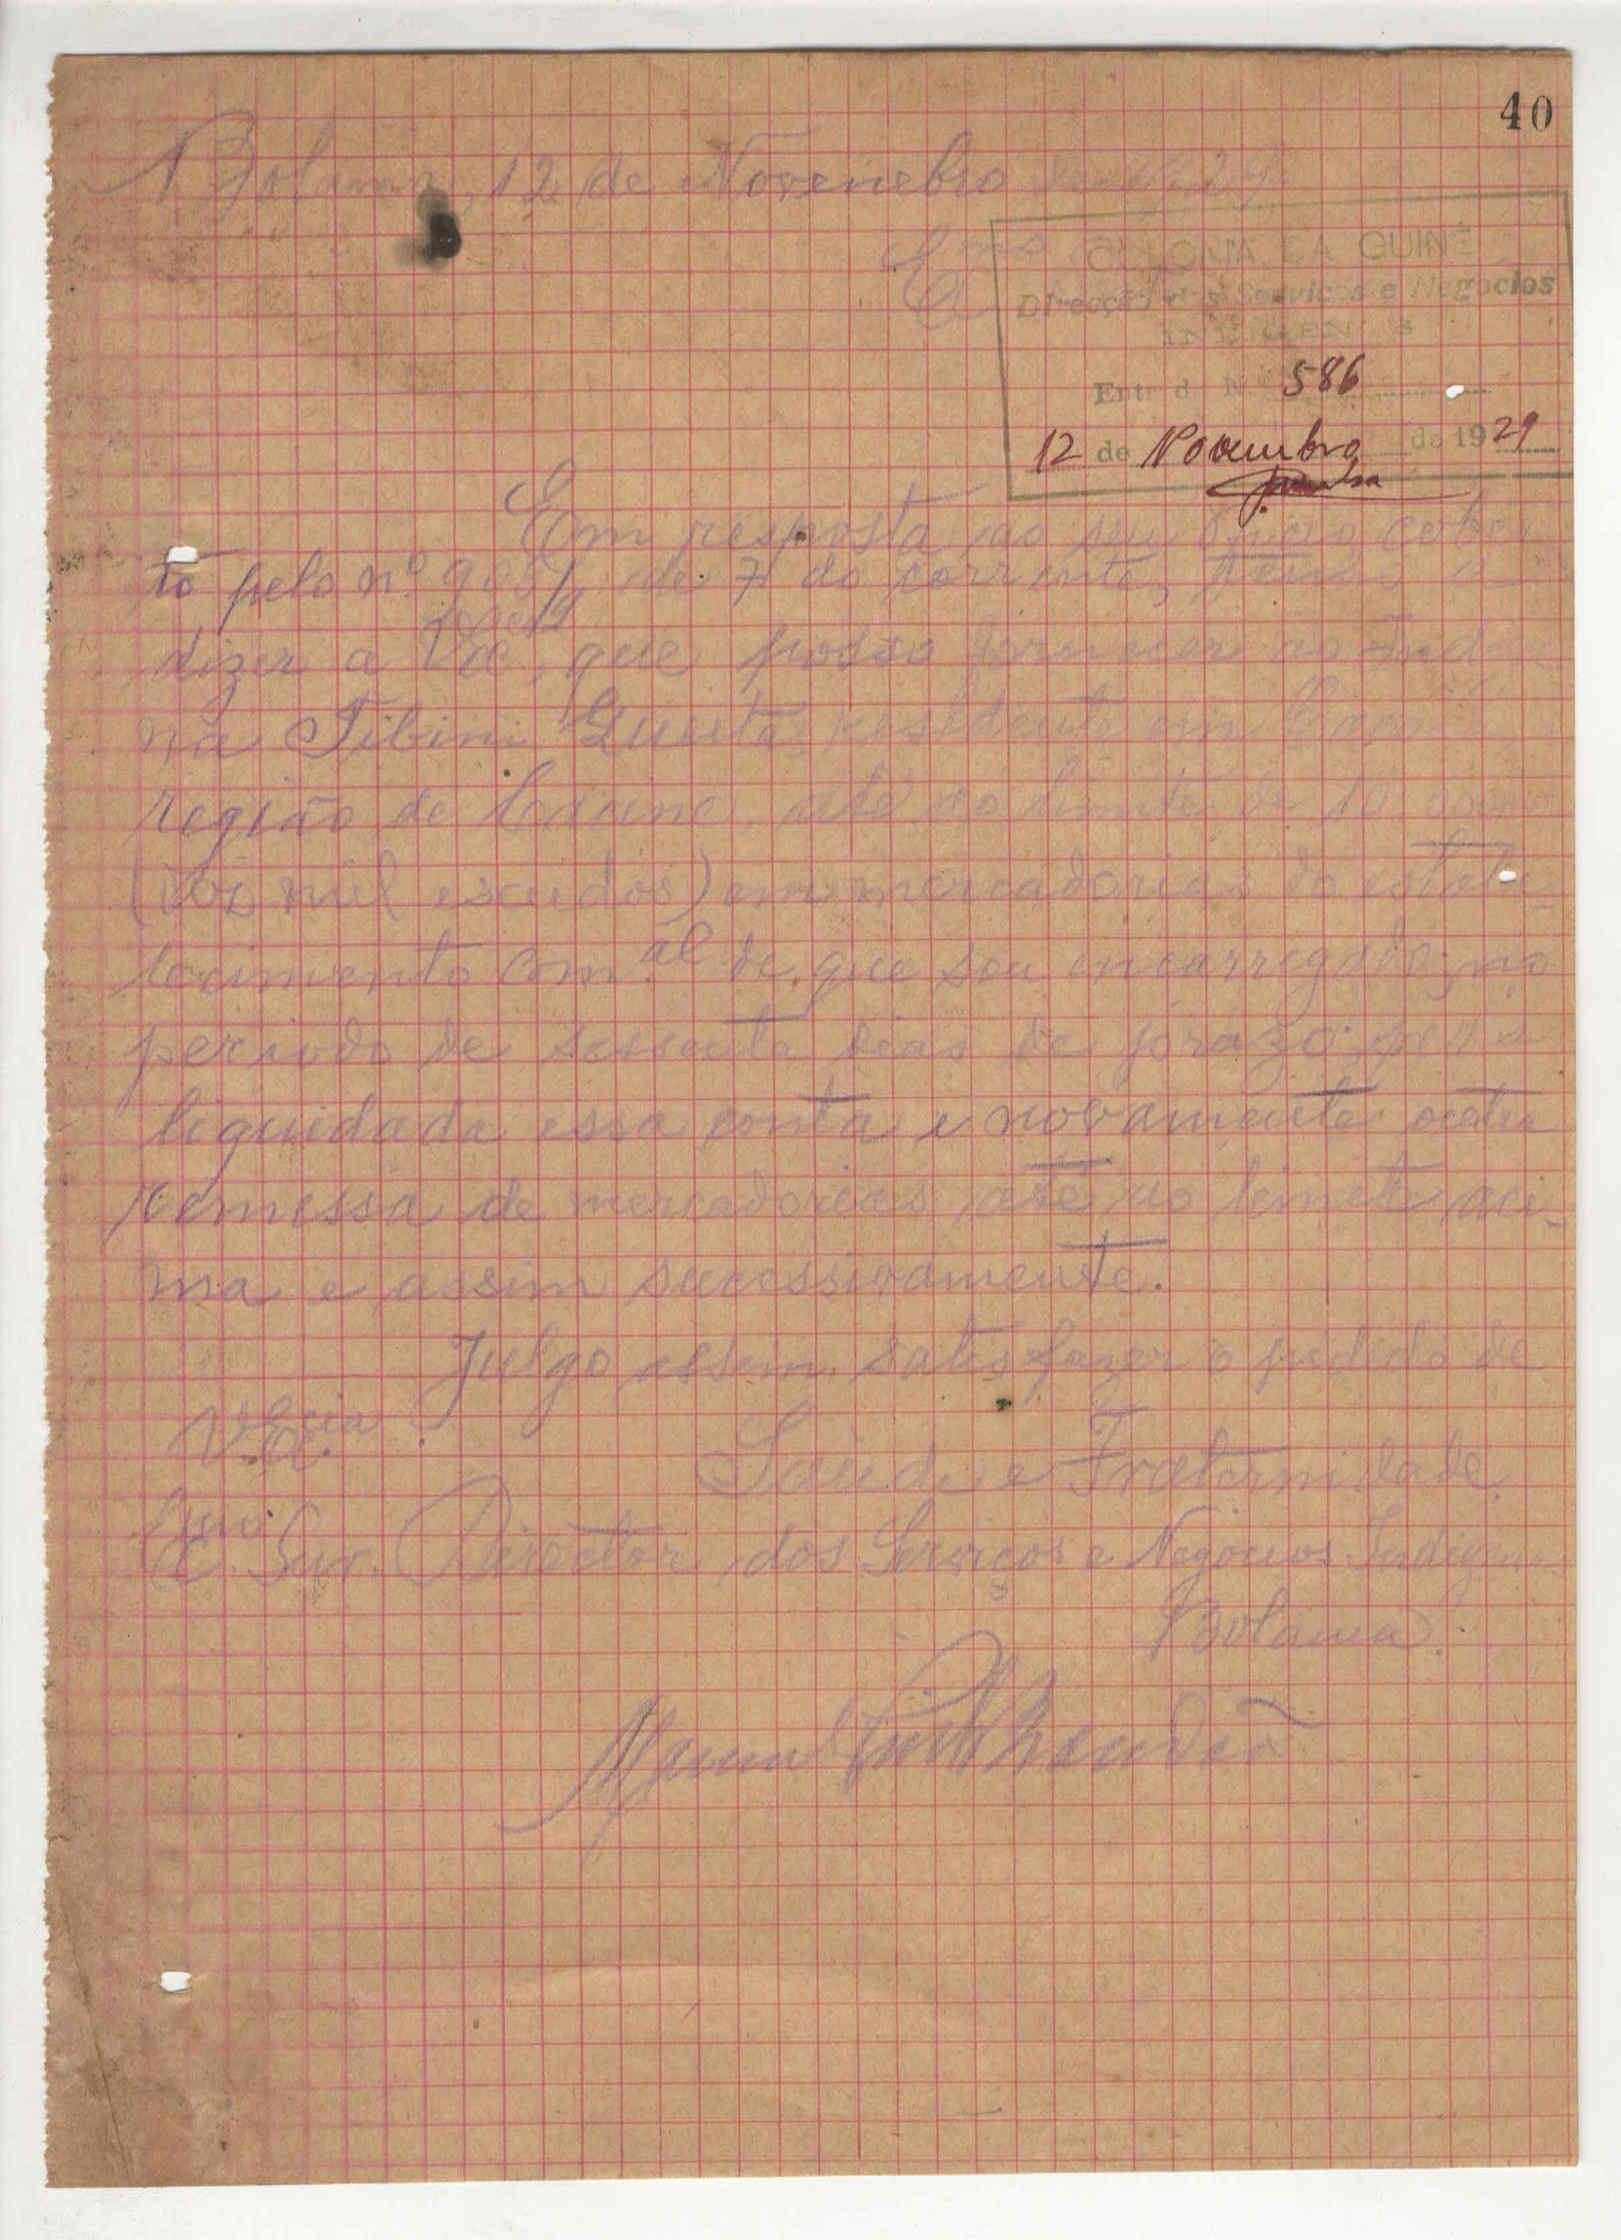 40
Bolama, 12 de Novembro de 1929
Exmo
COLONIA DA GUINÉ
Direcção dos Serviços e Negocios
INDIGENAS
Entrada N.º 586
12 de Novembro de 1929
Em resposta ao seu oficio, cober
to pelo nº de 7 do corrente, tenho a
dizer a V. Excia, que posso fornecer ao Indi
na Tibini residente em
região de até ao limite de 10.000$00
(dez mil escudos) em mercadorias do estabe-
lecimento com.al de que sou encarregado; no
periodo de sessenta dias de prazo;
liquidada essa conta e novamente outra
remessa de mercadorias até ao limite aci-
ma e assim sucessivamente.
Julgo assim satisfazer o pedido de
V. Excia.
Saúde e Fraternidade.
Exmo. Snr. Director dos Serviços e Negócios Indigenas
Bolama.
Manuel